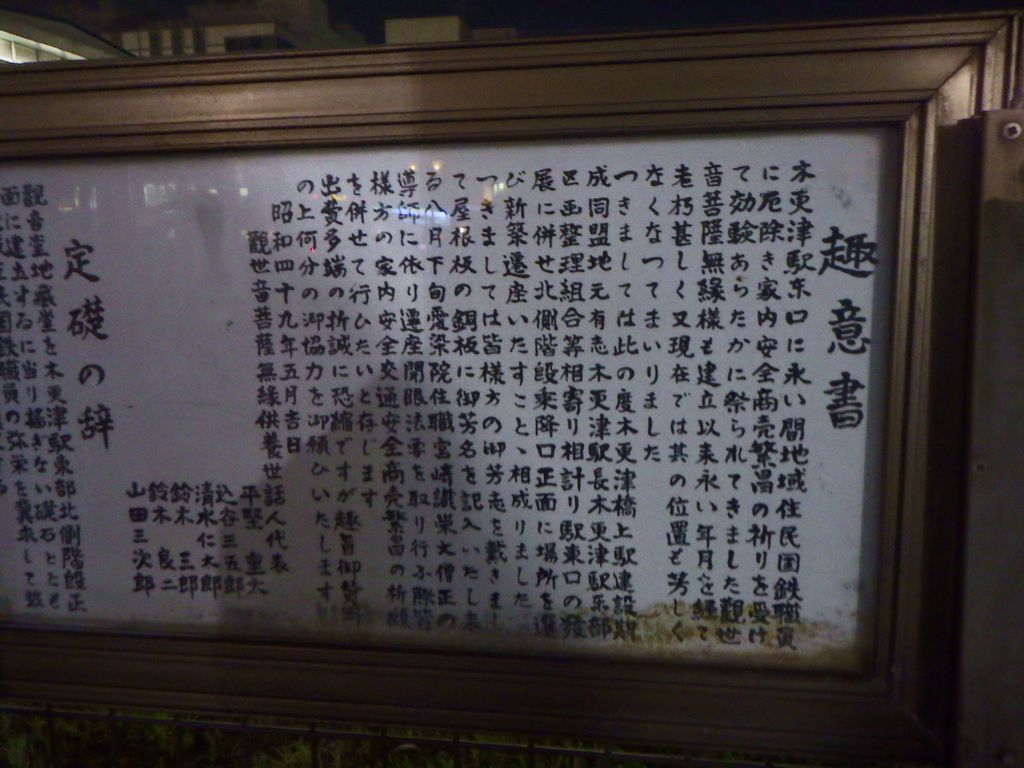 趣意書
木更津駅东口に永い間地域住民国鉄職員
に厄除き家内安全商売繁昌の祈りを受け
て効験あらたかに祭られてきました観世
音菩薩無縁様も建立以来永い年月を経て
老朽甚しく又現在では其の位置も芳しく
なくなつてまいりました
つきましては此の度木更津橋上駅建設期
成同盟地元有志木更津駅長木更津駅东部
区画整理組合等相寄り相計り駅東口の発
展に併せ北側階段乗降口正面に場所を選
び新築遷座いたすこと、相成りました
つきましては皆様方の御芳志を戴きまし
て屋根板の銅板に御芳名を記入いたし来
る八月下旬愛染院住職宮崎識栄大僧正の
導師に依り遷座開眼法要を取り行ふ際皆
様方の家内安全交通安全商売繁昌の祈願
を併せて行ひたいと存じます
出費多端の折誠に恐縮ですが趣旨御賛同
の上何分の御協力を御願ひいたします
昭和四十九年五月吉日
観世音菩薩無縁供養世話人代表
平野 重太
込谷三五郎
清水仁太郎
鈴木 三郎
鈴木 良二
山田三次郎
定礎の辞
観音堂地蔵堂を木更津駅東部北側階段正
面に建立するに当り揺ぎない礎石ととも
国鉄職員の弥栄を冀求して茲